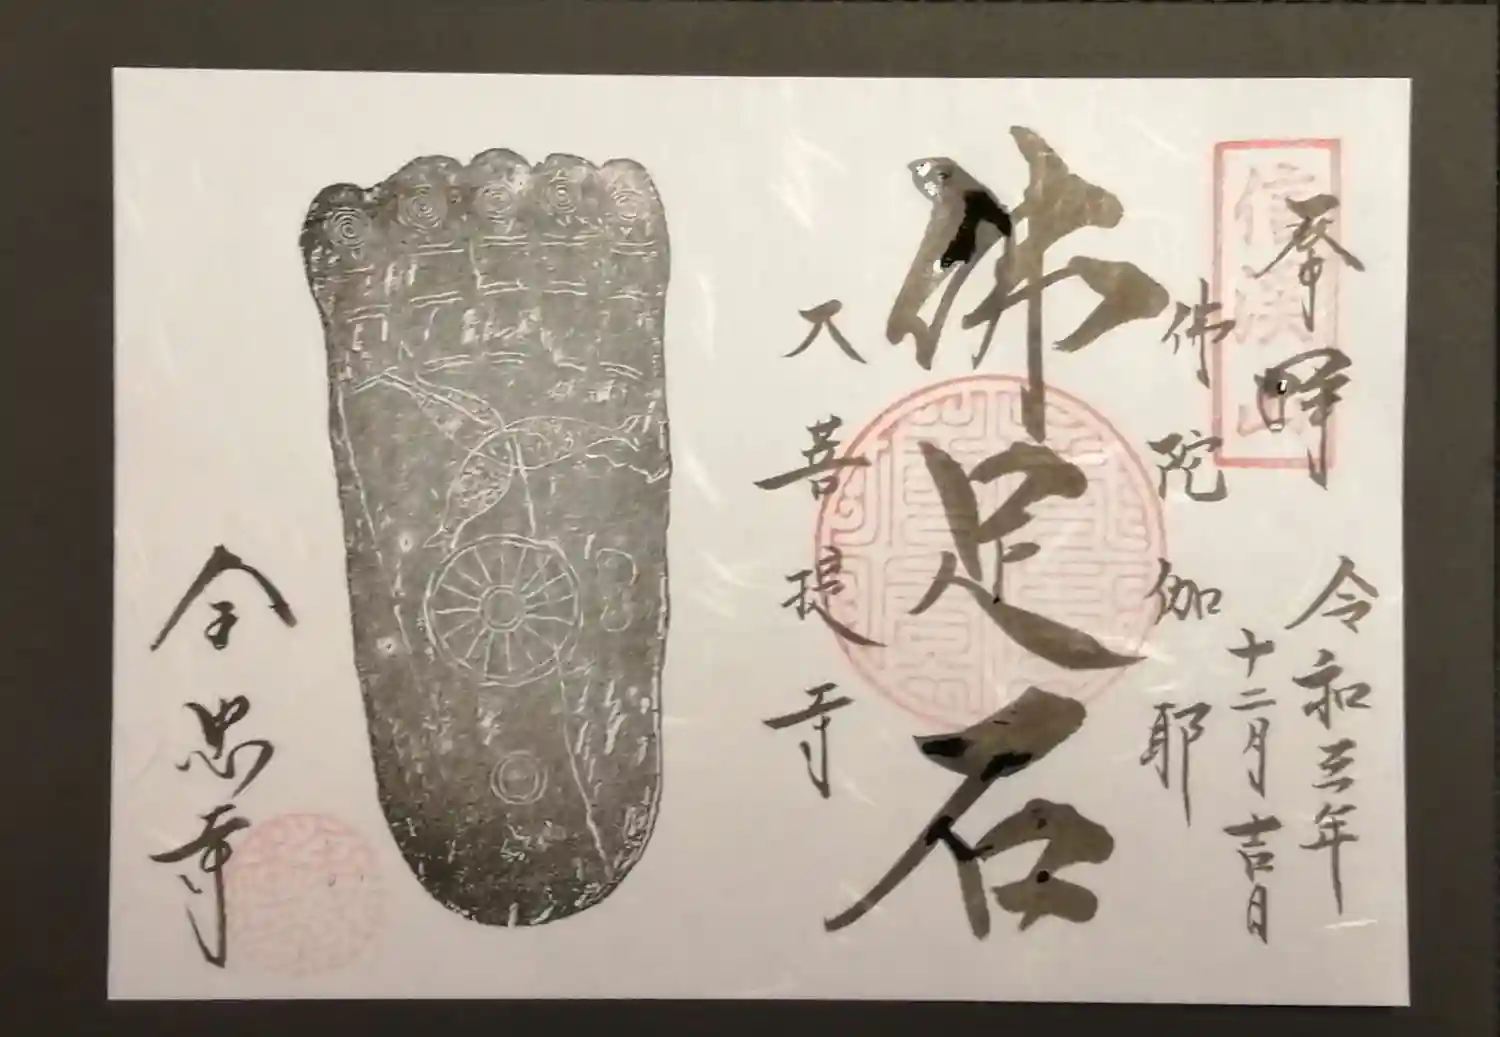 奉拝
信渓山
令和三年
十二月吉日
佛陀伽耶
佛足石
大菩提寺
全忠寺